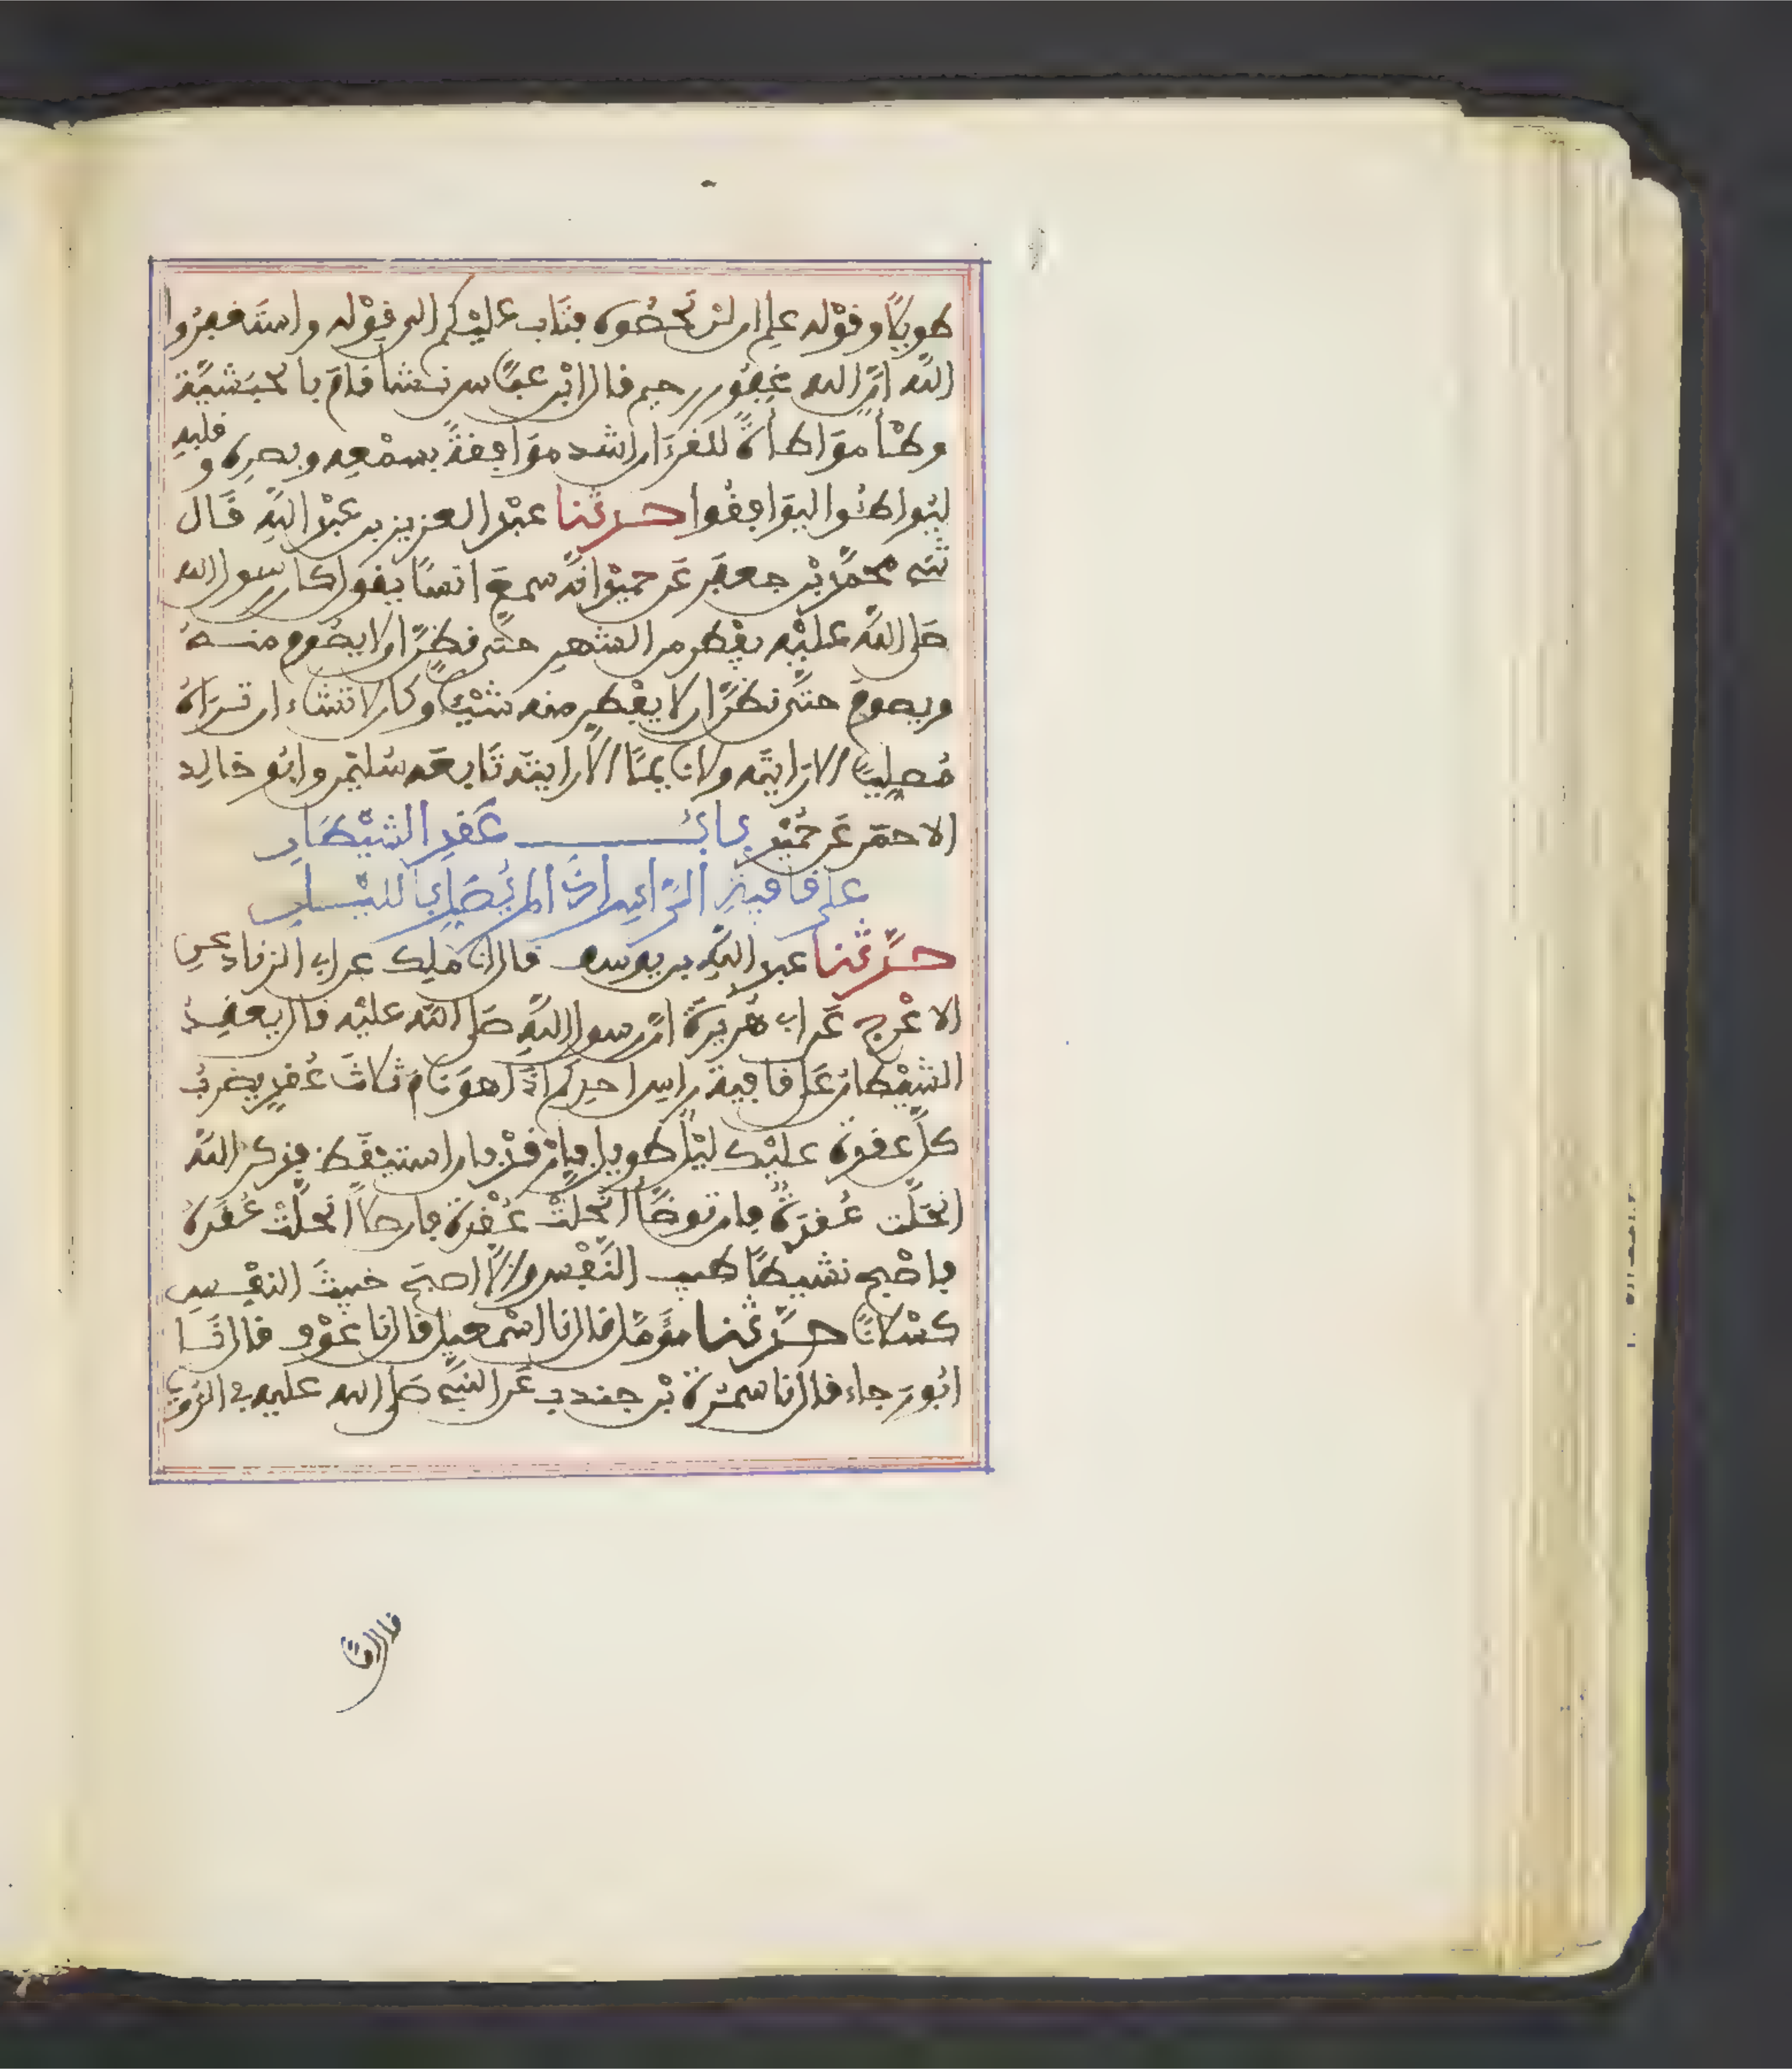 طويلًا وقوله علم ان لن تحصوه فتاب عليكم الى قوله واستغفروا
الله ان الله غفور رحيم قال ابن عباس نشأ قام بالحبشية
وطئا مواطأة للقرءان اشد موافقة بسمعه وبصره وقلبه
ليواطئوا ليوافقوا حدثنا عبد العزيز بن عبد الله قال
ثني محمد بن جعفر عن حميد انه سمع انسا يقول كان رسول الله
صلى الله عليه يفطر من الشهر حتى نظن ان لا يصوم منه
ويصوم حتى نظن ان لا يفطر منه شيئا وكان لا تشاء ان تراه
مصليا الا رايته ولا نايما الا رايته تابعه سليمن وابو خالد
الاحمر عن حميد باب عقد الشيطان
على قافية الراس اذا لم يصل بالليل
حدثنا عبد الله بن يوسف قال انا ملك عن ابي الزناد عن
الاعرج عن ابي هريرة ان رسول الله صلى الله عليه قال يعقد
الشيطان على قافية راس احدكم اذا هو نام ثلاث عقد يضرب
كل عقدة عليك ليل طويل فارقد فان استيقظ فذكر الله
انحلت عقدة فان توضأ انحلت عقدة فان صلى انحلت عقده
فاصبح نشيطا طيب النفس والا اصبح خبيث النفس
كسلانا حدثنا مؤمل قال نا اسمعيل قال نا عوف قال نا
ابو رجاء قال نا سمرة بن جندب عن النبي صلى الله عليه في الرؤيا
قال اما